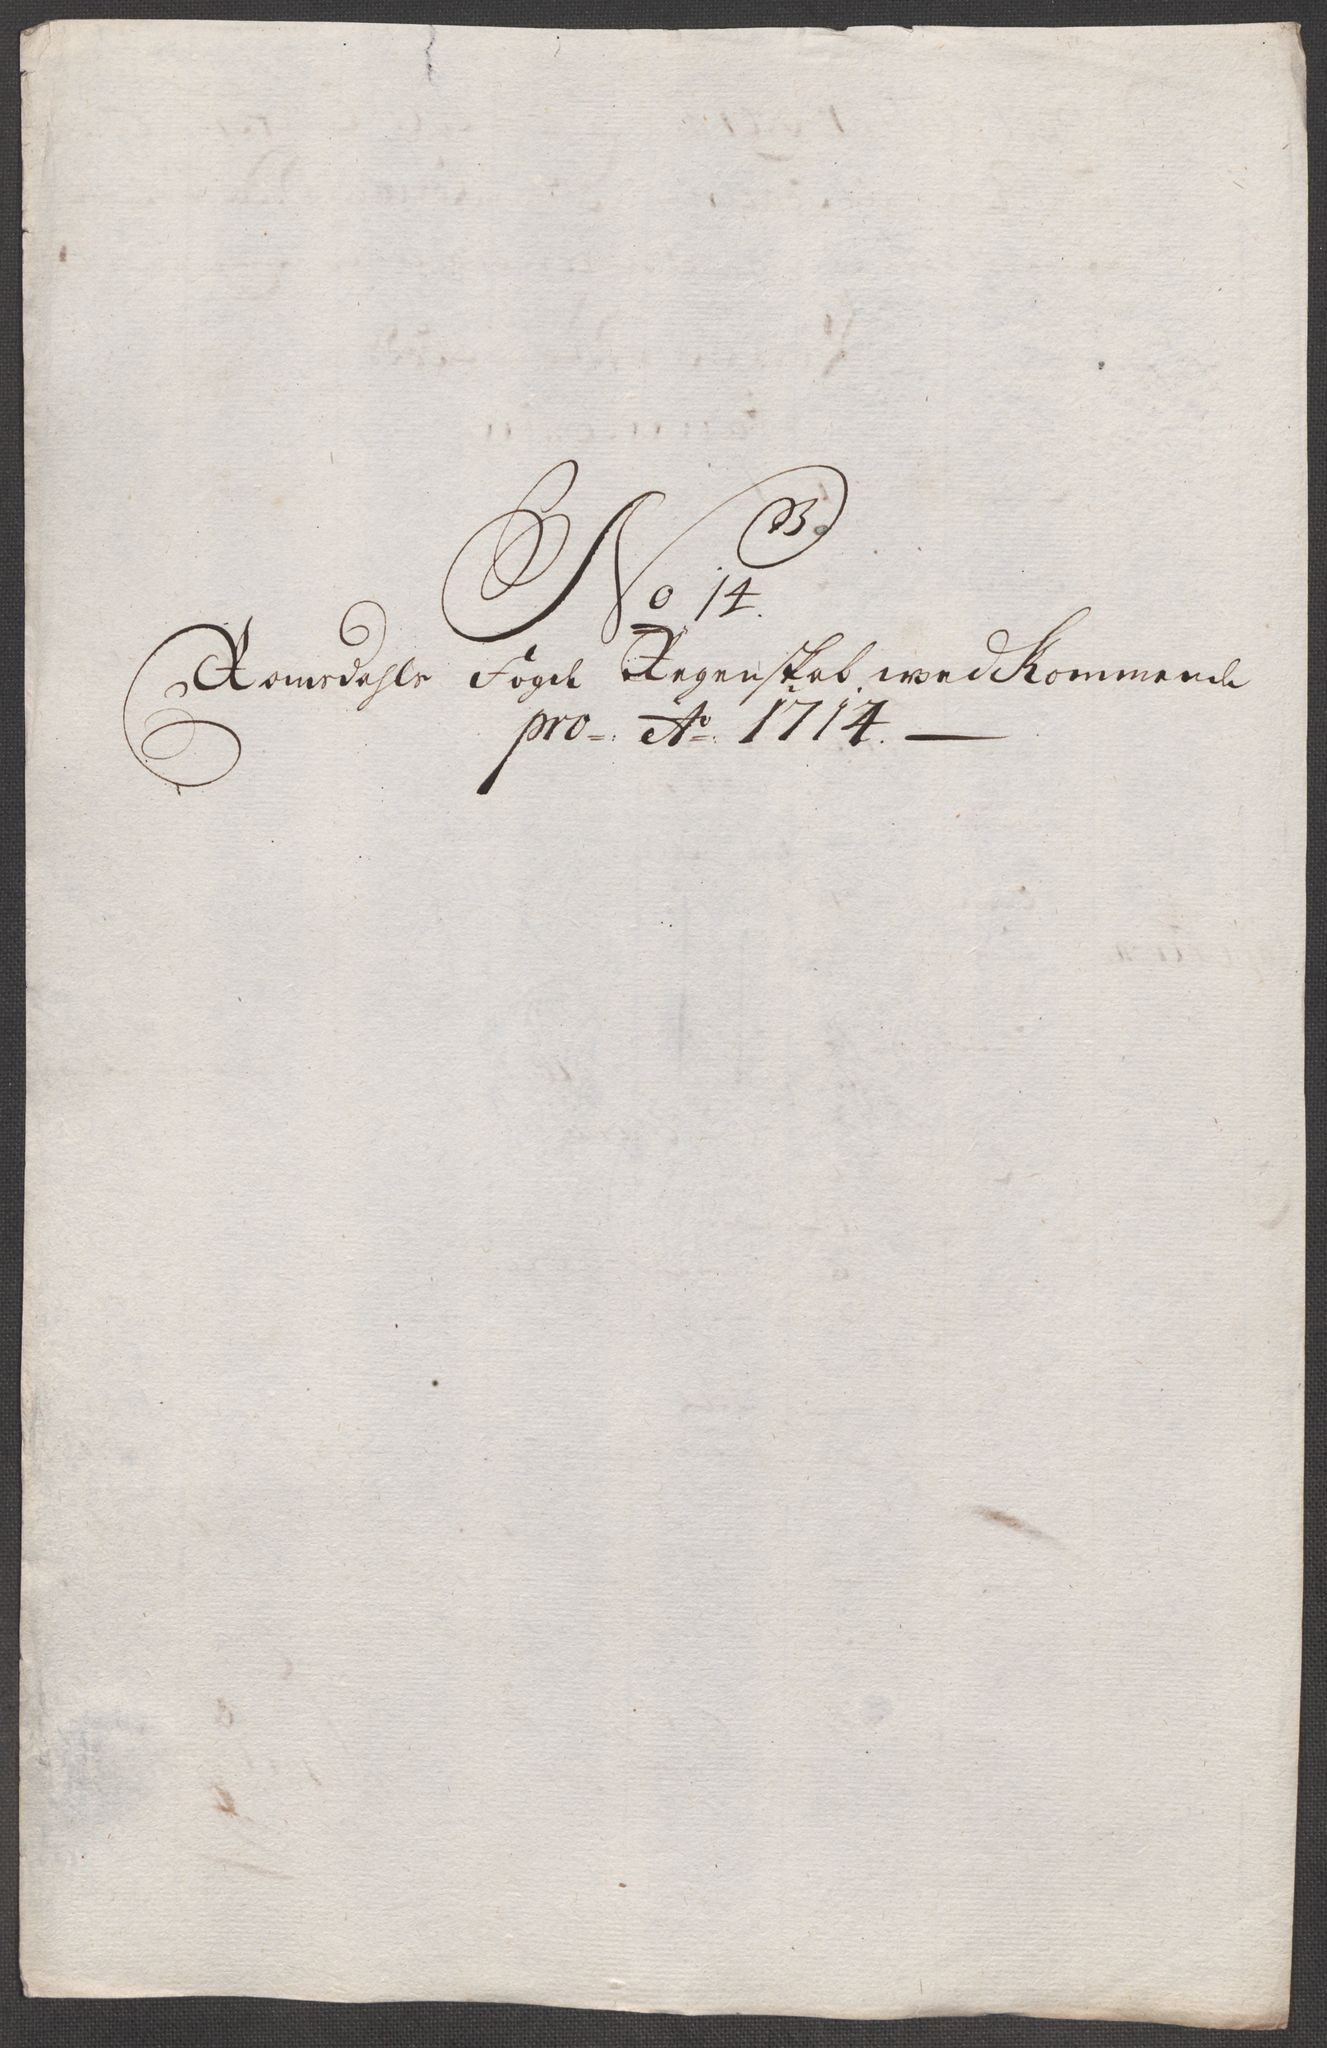 B.
No 14.
Romsdahls Fogde Regenskab wedkommende
pro. Ao. 1714.